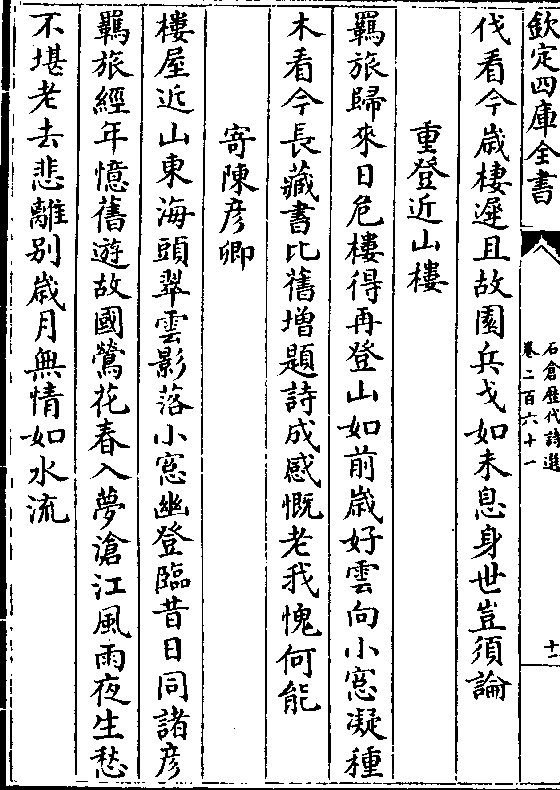 欽定四庫全書
石倉歷代詩選
卷二百六十一
十二
伐看今嵗棲遲且故園兵戈如未息身世豈須論
重登近山樓
羈旅歸來日危樓得再登山如前嵗好雲向小窓凝種
木看今長藏書比舊增題詩成感慨老我愧何能
寄陳彦卿
樓屋近山東海頭翠雲影落小窓幽登臨昔日同諸彦
羈旅經年憶舊遊故國鶯花春入夢滄江風雨夜生愁
不堪老去悲離别嵗月無情如水流